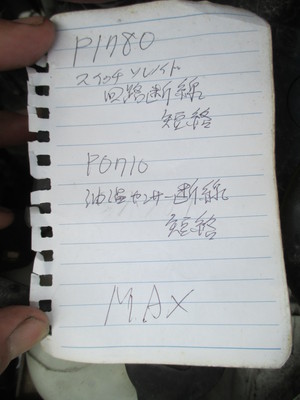 P1780
スイッチソレノイド
回路断線
短絡
P0710
油温センサー断線
短絡
MAX